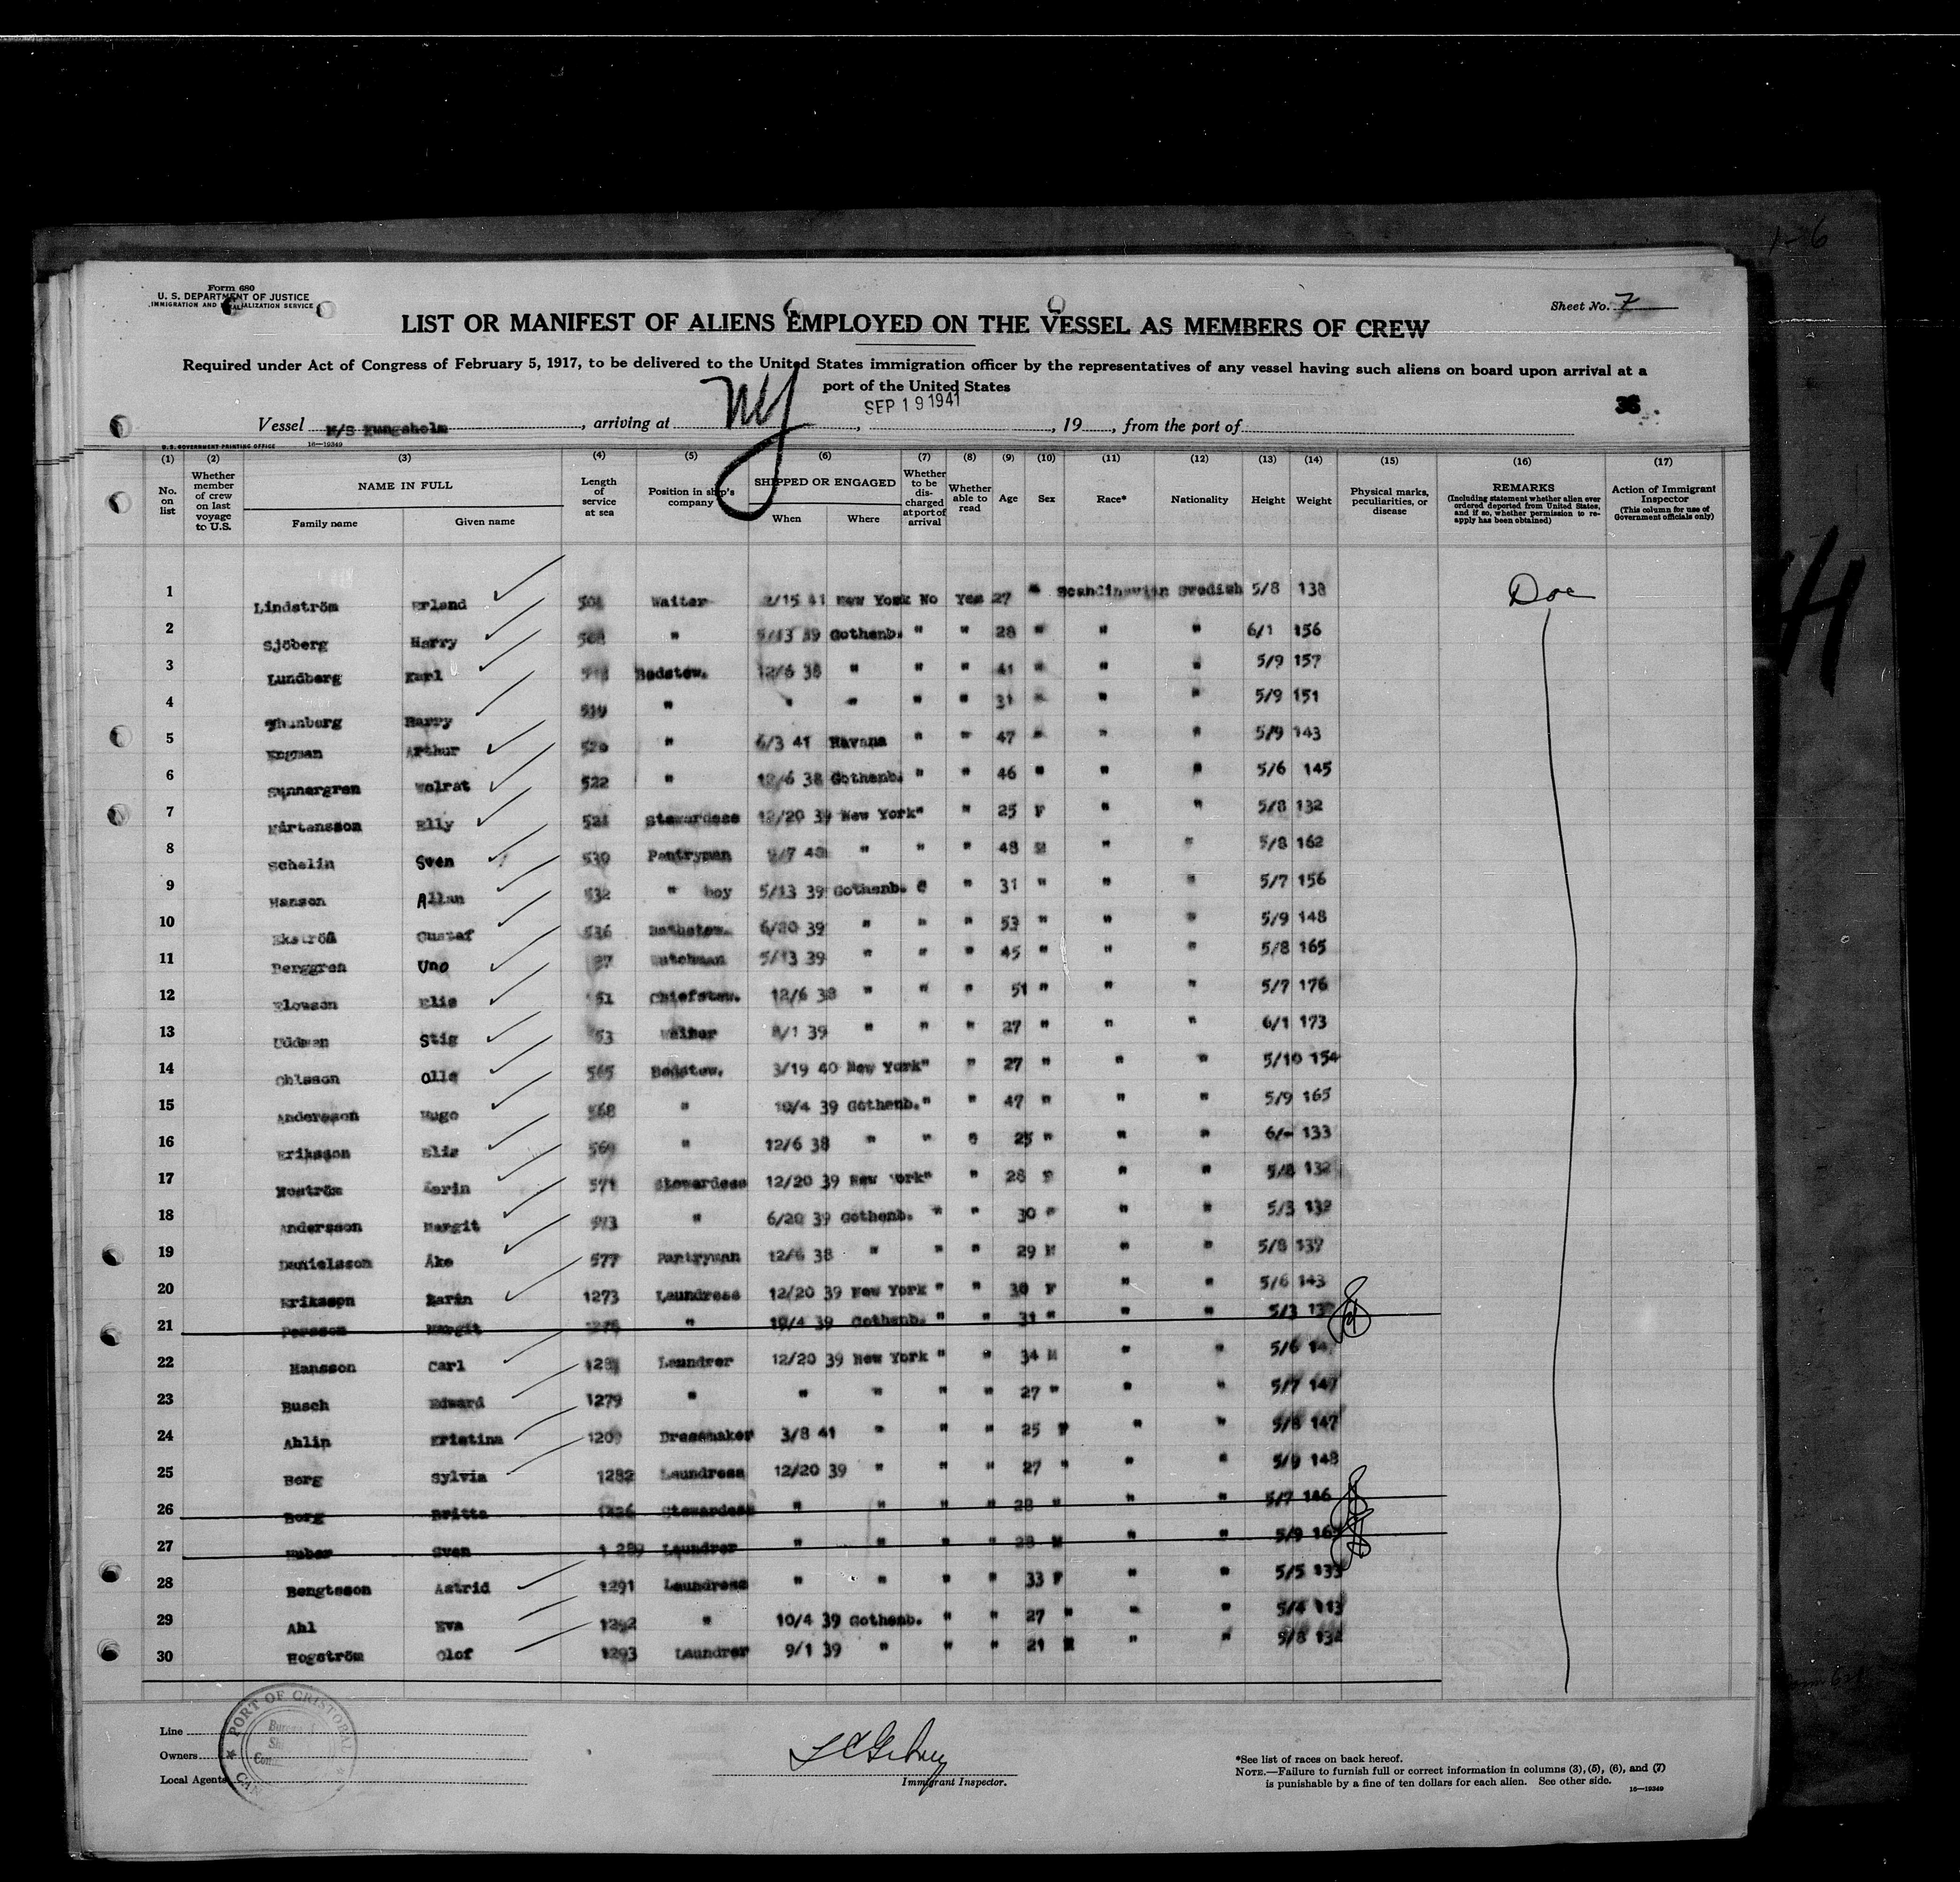 1-6
Form 680
U. S. DEPARTMENT OF JUSTICE
IMMIGRATION AND NATURALIZATION SERVICE
Sheet No. 7
LIST OR MANIFEST OF ALIENS EMPLOYED ON THE VESSEL AS MEMBERS OF CREW
Required under Act of Congress of February 5, 1917, to be delivered to the United States immigration officer by the representatives of any vessel having such aliens on board upon arrival at a
port of the United States
SEP 19 1941
Vessel M/S Kungsholm, arriving at NY, , 19 , from the port of
U. S. GOVERNMENT PRINTING OFFICE 16—19349
(1) (2) (3) (4) (5) (6) (7) (8) (9) (10) (11) (12) (13) (14) (15) (16) (17)
No. on list Whether member of crew on last voyage to U.S. NAME IN FULL Family name Given name Length of service at sea Position in ship's company SHIPPED OR ENGAGED When Where Whether to be discharged at port of arrival Whether able to read Age Sex Race* Nationality Height Weight Physical marks, peculiarities, or disease REMARKS (Including statement whether alien ever ordered deported from United States, and if so, whether permission to reapply has been obtained) Action of Immigrant Inspector (This column for use of Government officials only)
1 Lindström Erland Waiter 41 New York No Yes 27 Scandinavian Swedish 5/8 138
2 Sjöberg Harry " 5/13 39 Gothenb. " " 28 " " " 6/1 156
3 Lundberg Karl Bedstew. 12/6 38 " " " 41 " " " 5/9 157
4 Harry " " " " " 31 " " " 5/9 151
5 Engman Arthur " 6/3 41 Havana " " 47 " " " 5/9 143
6 Sunnergren Wolrat 522 " 12/6 38 Gothenb. " " 46 " " " 5/6 145
7 Mårtensson Elly Stewardess 12/20 39 New York " " 25 F " " 5/8 132
8 Schelin Sven 530 Pantryman " " " 48 M " " 5/8 162
9 Hanson Allan 532 " boy 5/13 39 Gothenb. " 31 " " " 5/7 156
10 Ekström Gustaf 536 Bathstew. 6/20 39 " " " 53 " " " 5/9 148
11 Berggren Uno 5/13 39 " " " 45 " " " 5/8 165
12 Elowson Elis Chiefstew. 12/6 38 " " " 51 " " " 5/7 176
13 Uddman Stig Waiter 39 " " " 27 " " " 6/1 173
14 Ohlsson Olle 565 Bedstew. 3/19 40 New York " " 27 " " " 5/10 154
15 Andersson Hugo 568 " 10/4 39 Gothenb. " " 47 " " " 5/9 165
16 Eriksson Elis 569 " 12/6 38 " " " 25 " " " 6/- 133
17 Karin 571 Stewardess 12/20 39 New York " " 28 F " " 5/8 132
18 Andersson Margit 573 " 6/20 39 Gothenb. " " 30 " " " 5/3 132
19 Danielsson Åke 577 Pantryman 12/6 38 " " " 29 M " " 5/8 137
20 Eriksson Karin 1273 Laundress 12/20 39 New York " " 30 F " " 5/6 143
21 Persson Margit " 10/4 39 Gothenb. " " 31 " " " 5/3
22 Hansson Carl Laundrer 12/20 39 New York " " 34 M " " 5/6
23 Busch Edward 1279 " " " " " 27 " " " 5/7 147
24 Ahlin Kristina Dressmaker 3/8 41 " " " 25 F " " 5/8 147
25 Borg Sylvia 1282 Laundress 12/20 39 " " " 27 " " " 5/9 148
26 Borg Britta Stewardess " " " " 28 " " " 5/7 146
27 Huber Sven 1289 Laundrer " " " " 28 M " " 5/9
28 Bengtsson Astrid 1291 Laundress " " " " 33 F " " 5/5 133
29 Ahl Eva 1292 " 10/4 39 Gothenb. " " 27 " " " 5/4 113
30 Hogström Olof 1293 Laundrer 9/1 39 " " " 21 M " " 5/8
PORT OF CRISTOBAL
Line
Owners
Local Agents
Immigrant Inspector.
*See list of races on back hereof.
NOTE.—Failure to furnish full or correct information in columns (3), (5), (6), and (7)
is punishable by a fine of ten dollars for each alien. See other side.
16—19349